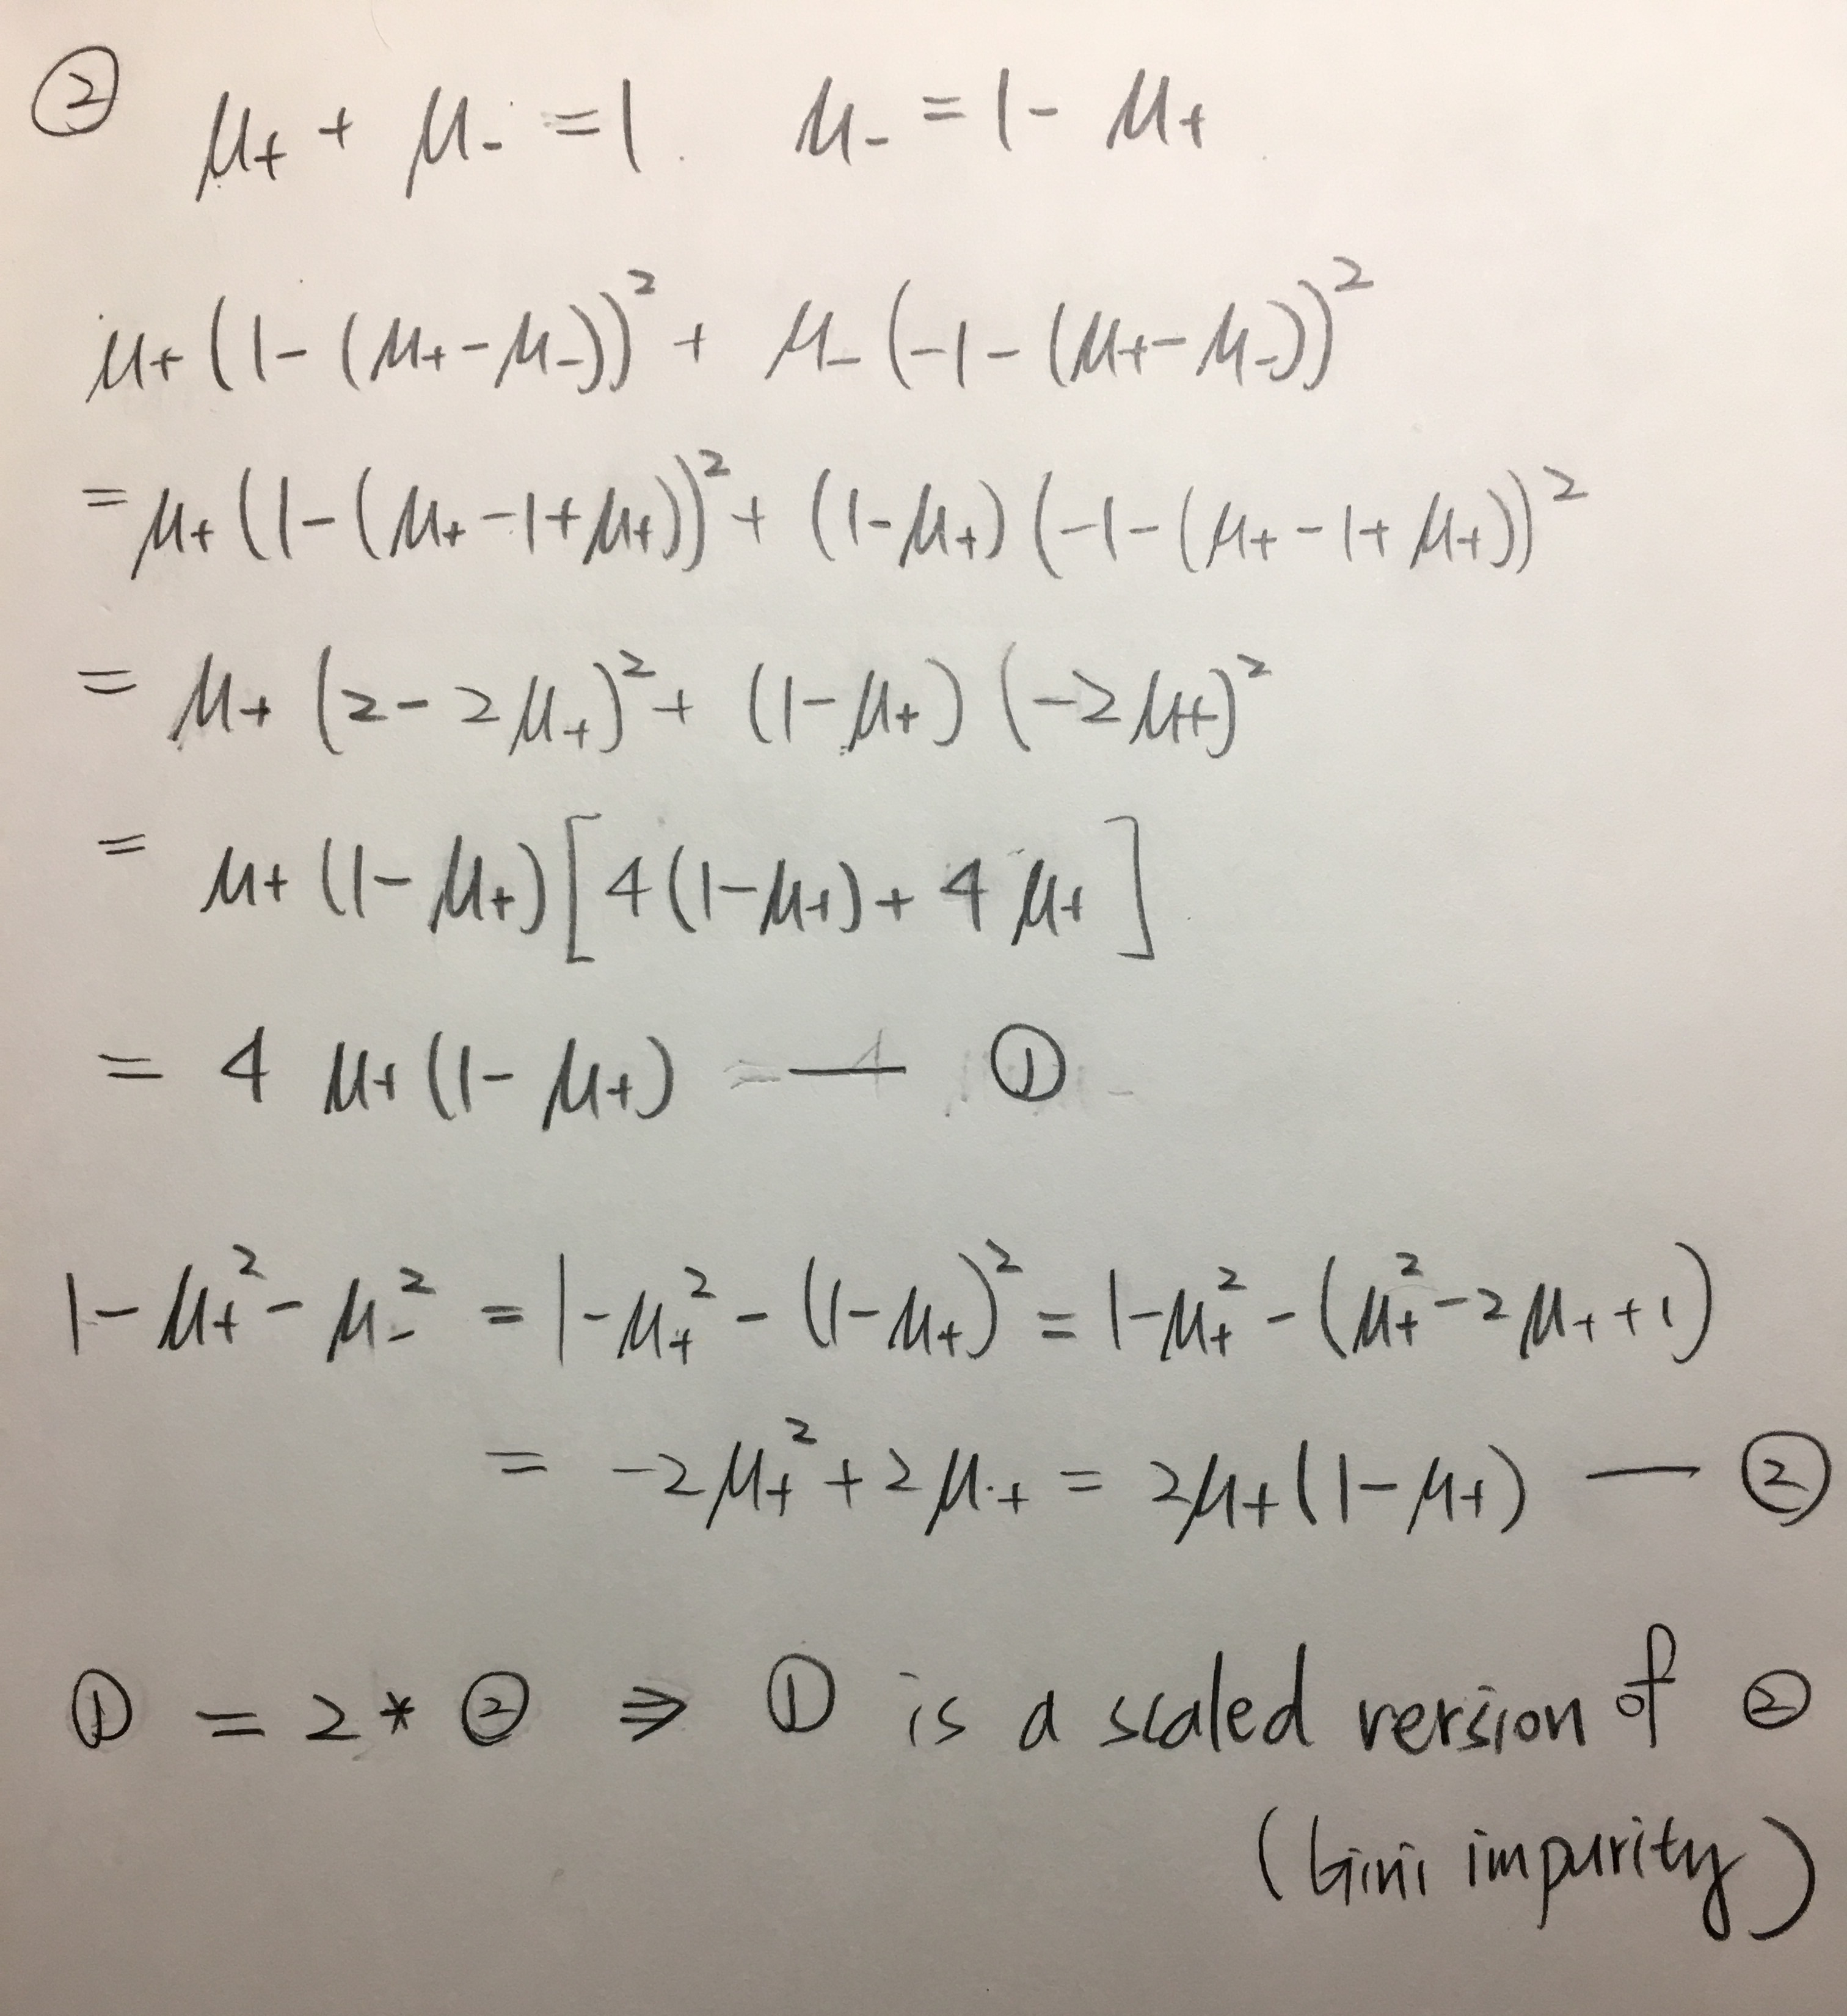 ② μ₊ + μ₋ = 1. μ₋ = 1 - μ₊
μ₊(1-(μ₊-μ₋))² + μ₋(-1-(μ₊-μ₋))²
= μ₊(1-(μ₊-1+μ₊))² + (1-μ₊)(-1-(μ₊-1+μ₊))²
= μ₊(2-2μ₊)² + (1-μ₊)(-2μ₊)²
= μ₊(1-μ₊)[4(1-μ₊)+4μ₊]
= 4 μ₊(1-μ₊) — ①
1-μ₊²-μ₋² = 1-μ₊²-(1-μ₊)² = 1-μ₊²-(μ₊²-2μ₊+1)
= -2μ₊²+2μ₊ = 2μ₊(1-μ₊) — ②
① = 2 * ② ⇒ ① is a scaled version of ②
(Gini impurity)